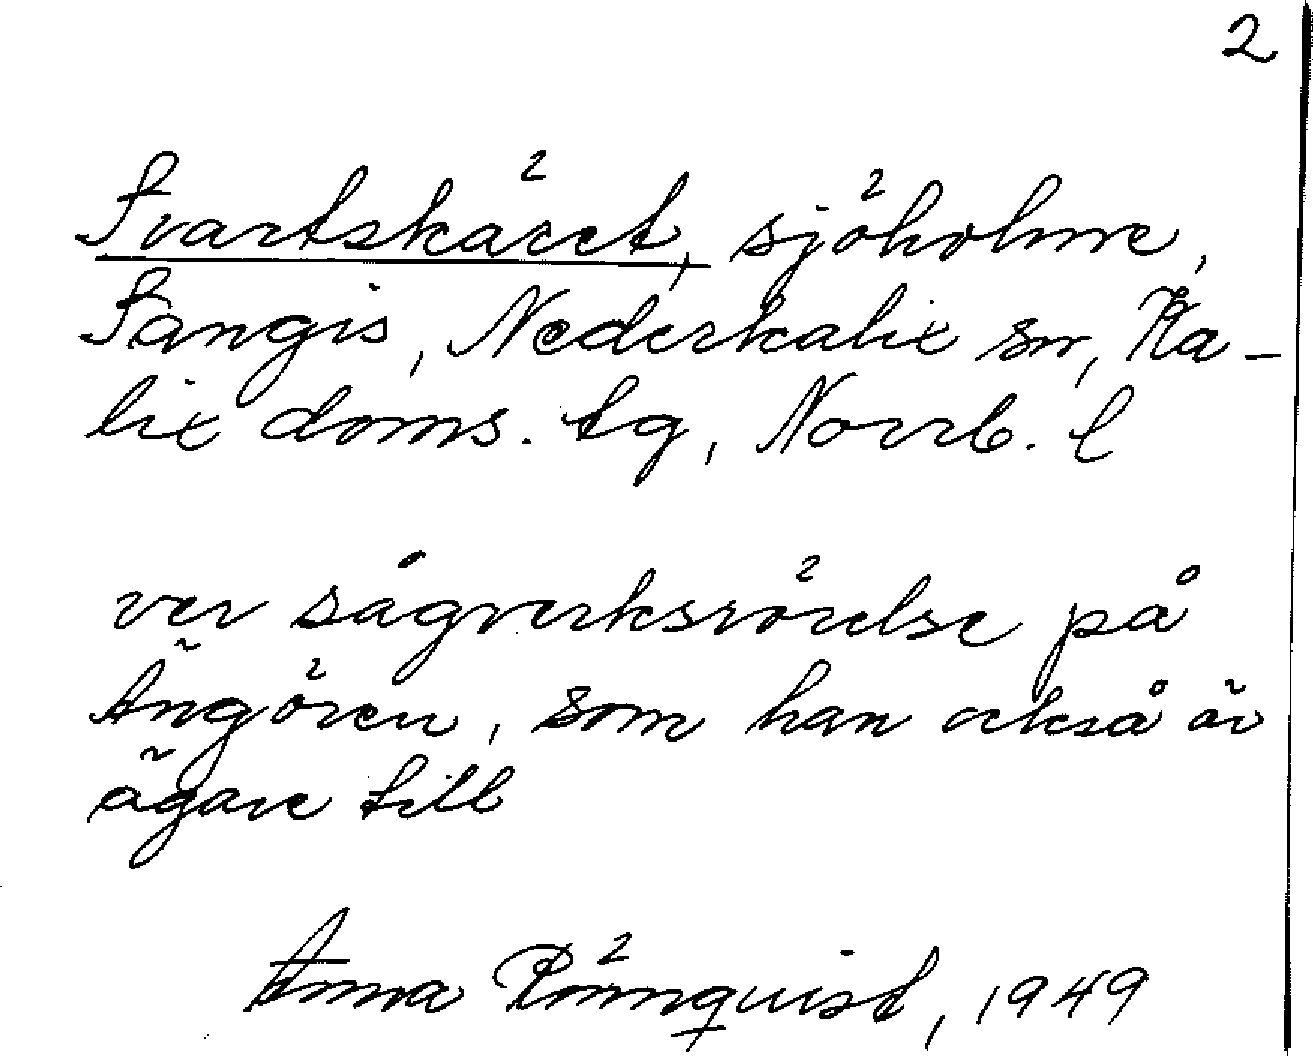 2
Svartskäret, sjöholme,
Sangis, Nederkalix sn, Ka-
lix doms. tg, Norrb. l
ver sågverksrörelse på
Ängören, som han också är
ägare till
Anna Rönnquist, 1949